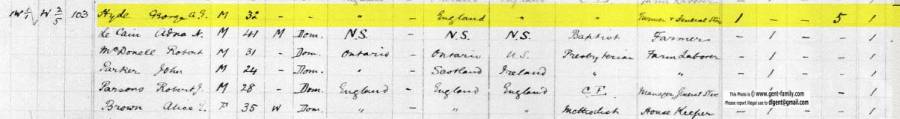 1W 6/1 W 3/5 103 Hyde George A. J. M 32 - " - England " " Farmer & General Store 1 - - 5 1
Le Cain Adna N. M 41 M Dom. N.S. - N.S. N.S. Baptist Farmer - 1 - - 1
McDonell Robert M 31 - Dom. Ontario - Ontario U.S. Presbyterian Farm Laborer - 1 - - 1
Parker John M 24 - Dom. " - Scotland Ireland " " - 1 - - 1
Parsons Robert J. M 28 - Dom. England - England England C.E. Manager General Store
Brown Alice L. F 35 W Dom. " - " " Methodist House Keeper
This Photo is © www.gent-family.com
Please report illegal use to digent@gmail.com